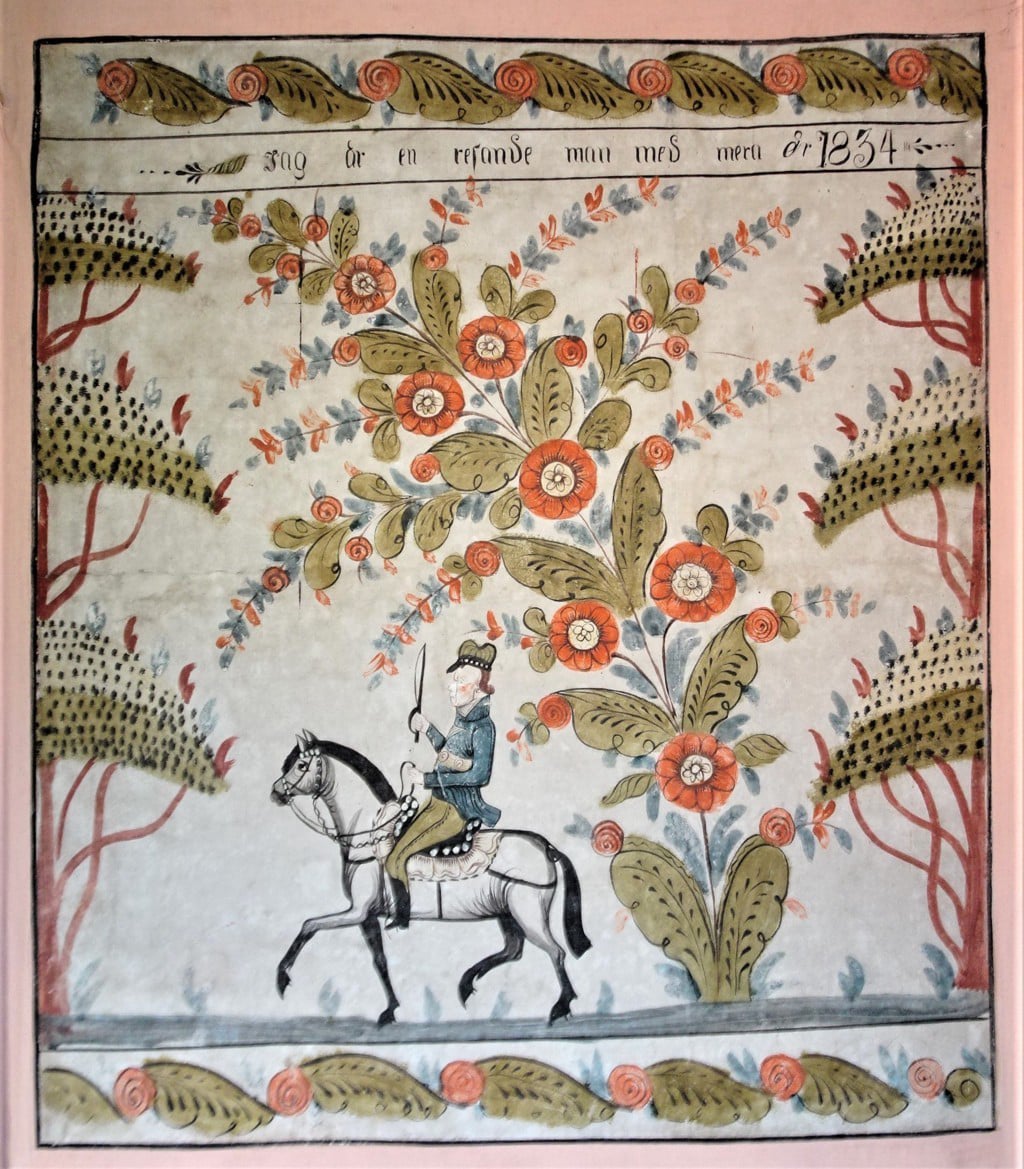 Jag är en resande man med mera år 1834